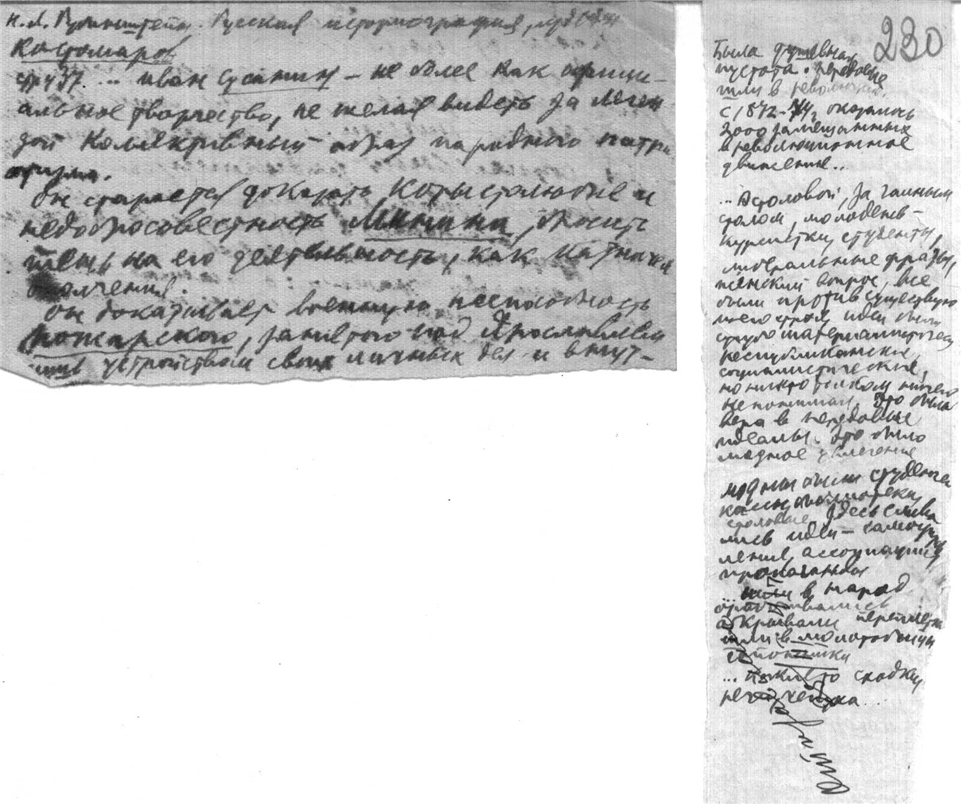 Н.Л. Рубинштейн. Русская историография,
Костомаров
стр 437. ... иван сусанин – не более как офици-
альное творчество, не желая видеть за леген
дой коллективный образ народного патри
отизма.
Он старается доказать корыстолюбие и
недобросовестность Минина, бросить
тень на его деятельность, как
ополчения.
Он доказывает военную неспособность
Пожарского, занятого под Ярославлем
устройством своих личных дел и внут-
230
Была душевная
пустота. Передовые
шли в революцию.
С 1872-74 г. оказалось
3000 замешанных
в революционное
движение...
... В столовой, за чайным
столом, молодежь –
курсистки, студенты,
либеральные фразы,
женский вопрос, все
были против существую
щего строя. Идеи были
грубо материалистическ
республиканские,
социалистические,
но никто толком ничего
не понимал. Это была
вера в передовые
идеалы. Это было
модное увлечение
Модны были студенчес
кассы, библиотеки,
столовые. Здесь слива
лись идеи – самоупр
ления, ассоциации,
пропаганды
шли в народ,
открывали
шли в молотобойцы
...